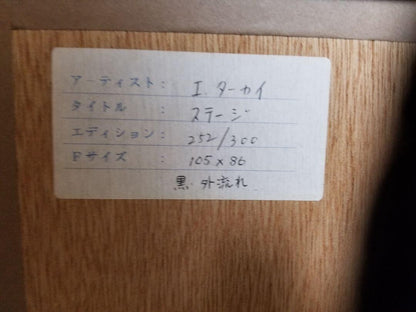 アーティスト： I. ターカイ
タイトル ： ステージ
エディション： 252/300
Fサイズ ： 105×86
黒 外流れ